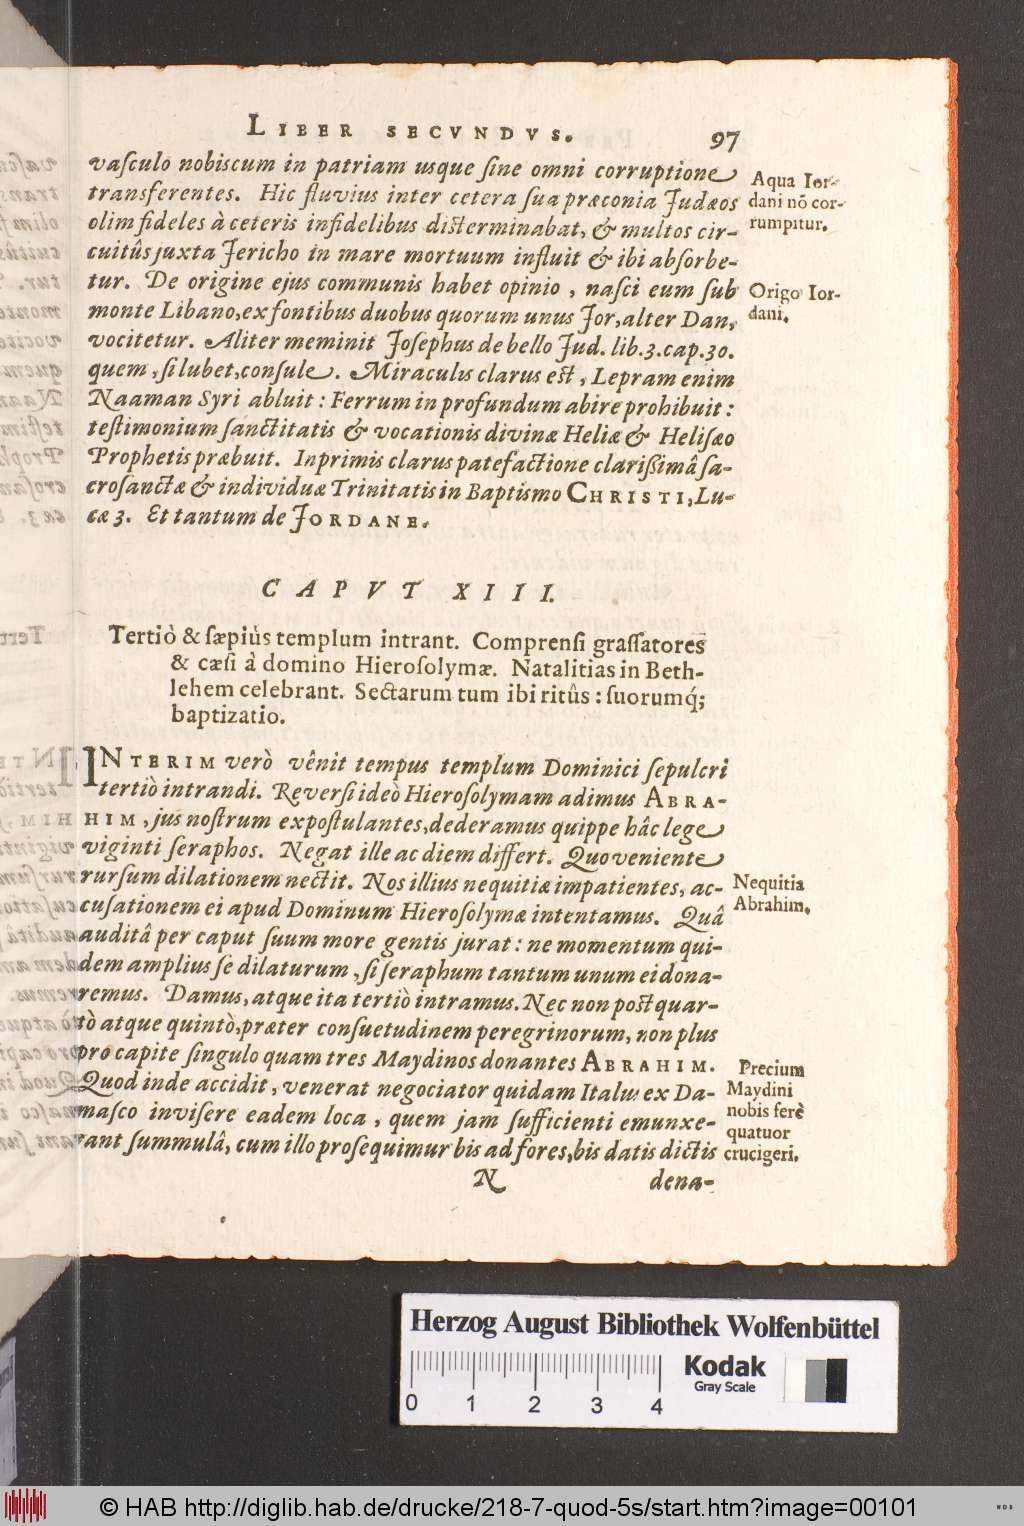 LIBER SECVNDVS. 97
vaſculo nobiscum in patriam usque ſine omni corruptione
transferentes. Hic fluvius inter cetera ſua præconia Judæos
olim fideles à ceteris infidelibus disterminabat, & multos cir-
cuitûs juxta Jericho in mare mortuum influit & ibi abſorbe-
tur. De origine ejus communis habet opinio, naſci eum ſub
monte Libano, ex fontibus duobus quorum unus Jor, alter Dan,
vocitetur. Aliter meminit Joſephus de bello Jud. lib. 3. cap. 30.
quem, ſi lubet, conſule. Miraculis clarus est, Lepram enim
Naaman Syri abluit: Ferrum in profundum abire prohibuit:
teſtimonium ſanctitatis & vocationis divinæ Heliæ & Heliſæo
Prophetis præbuit. Inprimis clarus patefactione clarißimâ ſa-
croſanctæ & individuæ Trinitatis in Baptismo CHRISTI, Lu-
cæ 3. Et tantum de JORDANE.
Aqua Ior-
dani nō cor-
rumpitur.
Origo Ior-
dani.
CAPVT XIII.
Tertiò & ſæpiùs templum intrant. Comprenſi graſſatores
& cæſi à domino Hieroſolymæ. Natalitias in Beth-
lehem celebrant. Sectarum tum ibi ritûs: ſuorumq́;
baptizatio.
INTERIM verò vênit tempus templum Dominici ſepulcri
tertiò intrandi. Reverſi ideò Hieroſolymam adimus ABRA-
HIM, jus noſtrum expoſtulantes, dederamus quippe hâc lege
viginti ſeraphos. Negat ille ac diem differt. Quo veniente
rurſum dilationem nectit. Nos illius nequitiæ impatientes, ac-
cuſationem ei apud Dominum Hieroſolymæ intentamus. Quâ
auditâ per caput ſuum more gentis jurat: ne momentum qui-
dem amplius ſe dilaturum, ſi ſeraphum tantum unum ei dona-
remus. Damus, atque ita tertiò intramus. Nec non post quar-
tò atque quintò, præter conſuetudinem peregrinorum, non plus
pro capite ſingulo quam tres Maydinos donantes ABRAHIM.
Quod inde accidit, venerat negociator quidam Italus ex Da-
maſco inviſere eadem loca, quem jam ſufficienti emunxe-
rant ſummulâ, cum illo proſequimur bis ad fores, bis datis dictis
Nequitia
Abrahim.
Precium
Maydini
nobis ferè
quatuor
crucigeri.
N dena-
Herzog August Bibliothek Wolfenbüttel
Kodak
Gray Scale
0 1 2 3 4
© HAB http://diglib.hab.de/drucke/218-7-quod-5s/start.htm?image=00101